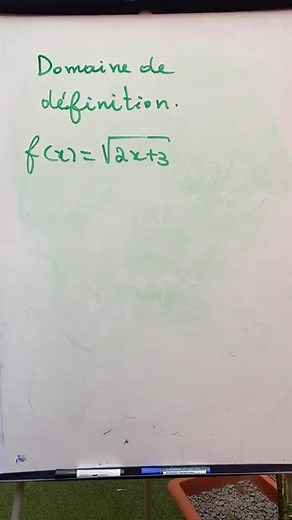 Domaine de
définition.
f(x)=√2x+3